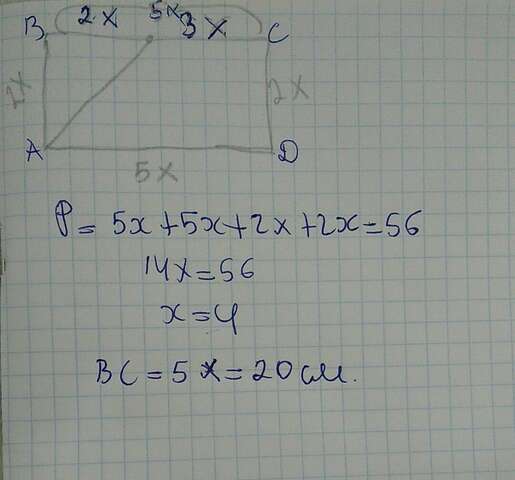 B 2x 5x 3x C
2x 2x
A D
5x
P = 5x + 5x + 2x + 2x = 56
14x = 56
x = 4
BC = 5x = 20 см.